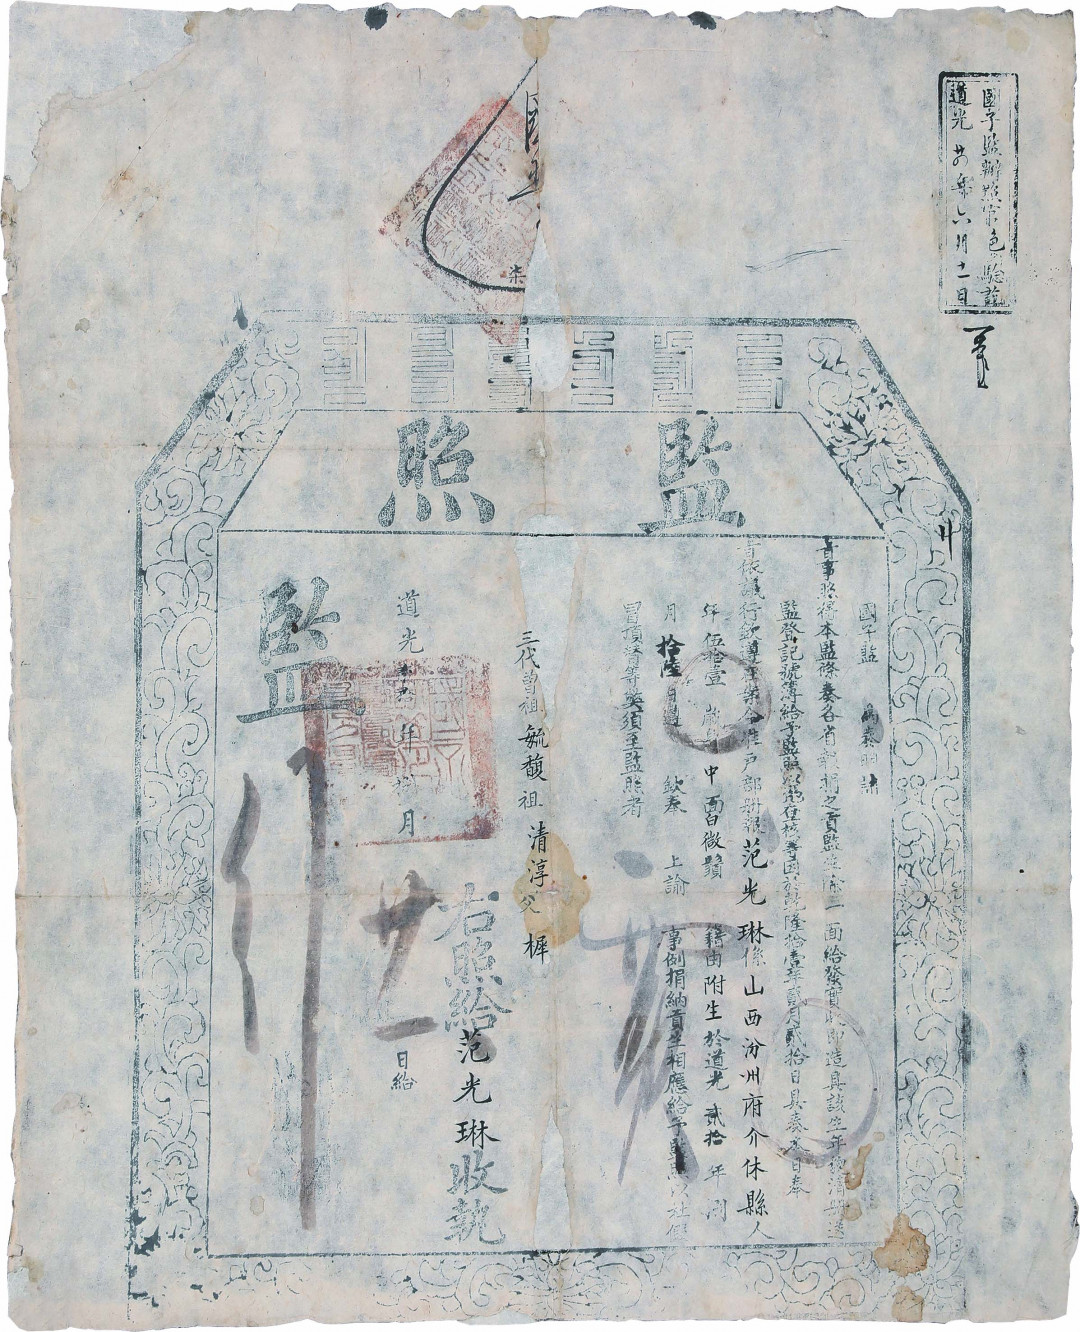 國子監辦照常色驗訖
道光廿年六月十一日
柒
監照
國子監 為奏明請
旨事照得本監條奏各省報捐之貢監生除三面給發實收即造具該生年貌清冊送
監登記號簿給予監照以憑在核等因於乾隆拾壹年貳月貳拾日具奏本日奉
旨依議行欽遵在案今准戶部冊報范光琳係山西汾州府介休縣人
年伍拾壹歲身中面白微鬚 籍由附生於道光貳拾年 月拾陸日遵
欽奉
上諭 事例捐納貢生相應給予監照以杜假
冒頂替等獘須至監照者
三代曾祖毓馥祖清淳父樨
右照給范光琳收執
道光 年 月廿一日給
監
行